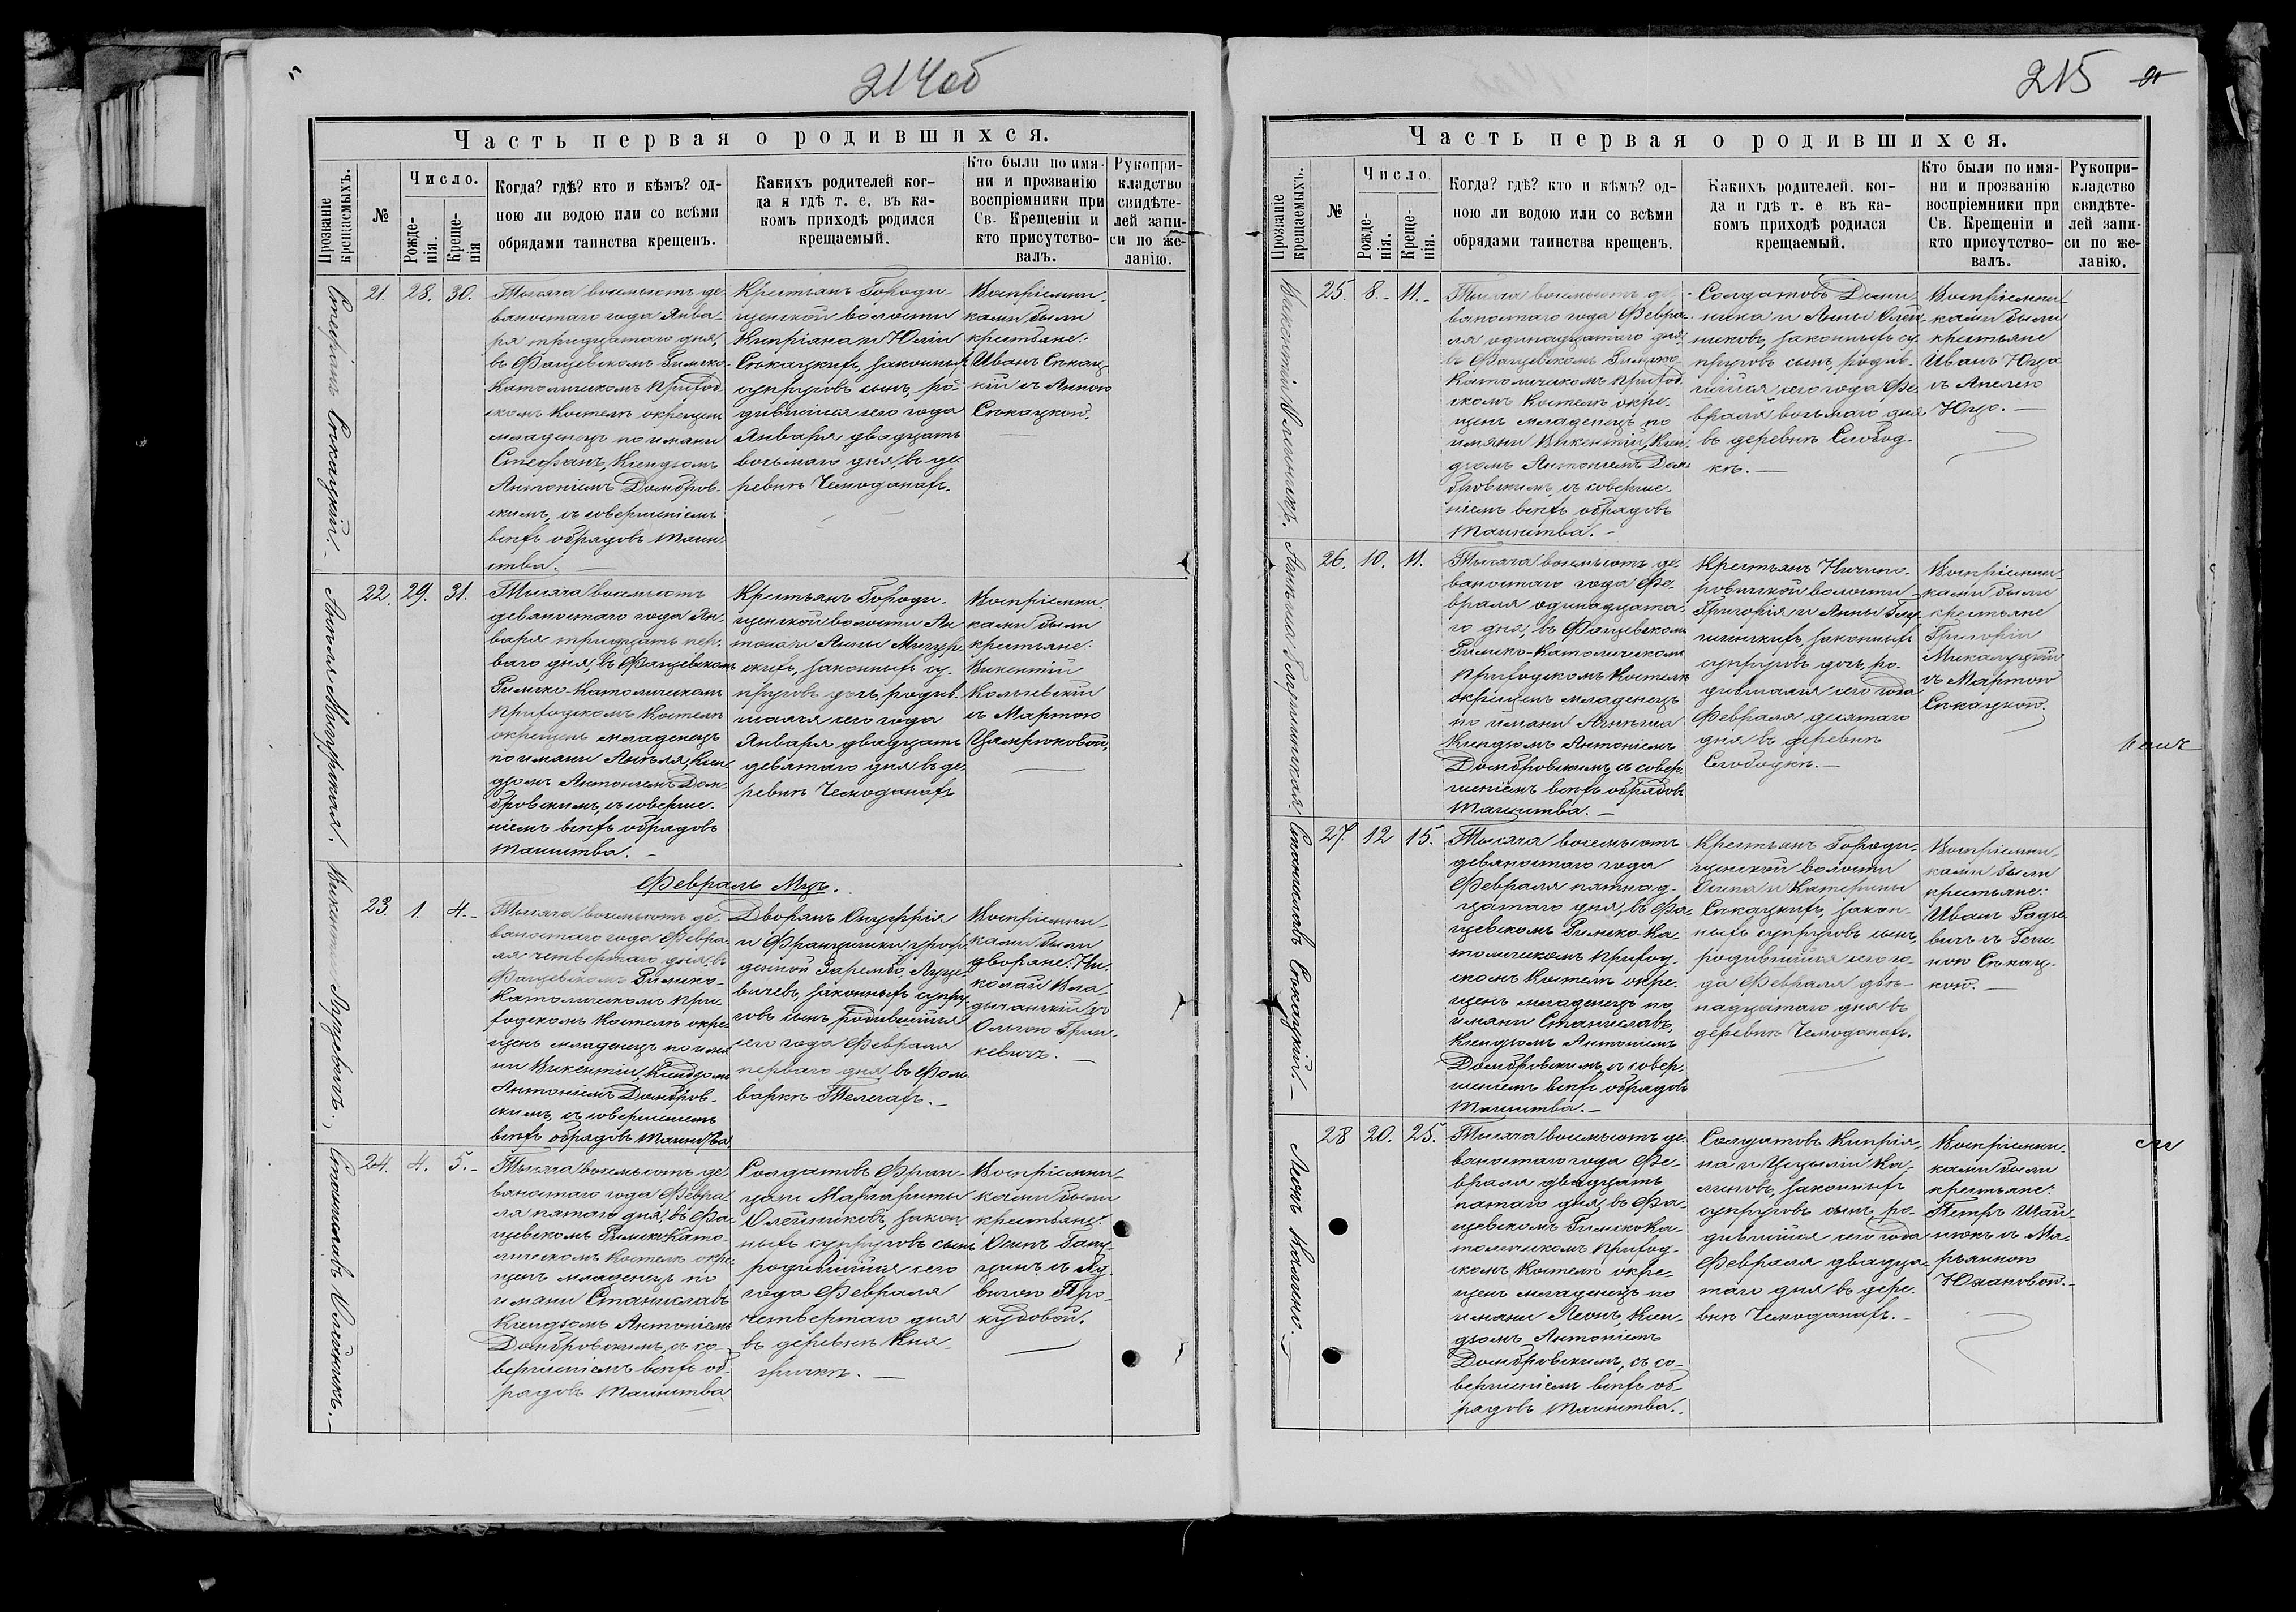 214об
Часть первая о родившихся.
Прозваніе крещаемыхъ.
№
Число.
Рожде-
нія.
Креще-
нія
Когда? гдѣ? кто и кѣмъ? од-
ною ли водою или со всѣми
обрядами таинства крещенъ.
Какихъ родителей ког-
да и гдѣ т. е. въ ка-
комъ приходѣ родился
крещаемый.
Кто были по имя-
ни и прозванію
воспріемники при
Св. Крещеніи и
кто присутство-
валъ.
Рукопри-
кладство
свидѣте-
лей запи-
си по же-
ланію.
Стефанъ Сѣкацкій
21. 28. 30.
Тысяча восемьсотъ де-
вяностаго года Янва-
ря тридцатаго дня,
въ Фащевскомъ Римско-
Католическомъ приход-
скомъ костелѣ окрещенъ
младенецъ по имяни
Стефанъ, Ксендзомъ
Антоніемъ Домбров-
скимъ, съ совершеніемъ
всѣхъ обрядовъ таин-
ства.
Крестьянъ Городи-
щенской волости
Кипріана и Юліи
Сѣкацкихъ, законныхъ
супруговъ сынъ, ро-
дившійся сего года
Января двадцать
восьмаго дня, въ де-
ревнѣ Чемоданахъ.
Воспріемни-
ками были
крестьяне:
Иванъ Сѣкац-
кій съ Анною
Сѣкацкой.
22. 29. 31.
Тысяча восемьсотъ
девяностаго года Ян-
варя тридцать пер-
ваго дня, въ Фащевскомъ
Римско-Католическомъ
приходскомъ костелѣ
окрещенъ младенецъ
по имяни Анеля, Ксен-
дзомъ Антоніемъ Дом-
бровскимъ, съ соверше-
ніемъ всѣхъ обрядовъ
таинства.
Крестьянъ Городи-
щенской волости Ан-
тона и Анны
законныхъ су-
пруговъ дочь, родив-
шаяся сего года
Января двадцать
девятаго дня въ де-
ревнѣ Чемоданахъ
Воспріемни-
ками были
крестьяне:
Викентій
съ Мартою
Февраль Мцъ.
Викентій
23. 1. 4.
Тысяча восемьсотъ де-
вяностаго года Февра-
ля четвертаго дня, въ
Фащевскомъ Римско-
Католическомъ при-
ходскомъ костелѣ окре-
щенъ младенецъ по имя-
ни Викентій, Ксендзомъ
Антоніемъ Домбров-
скимъ, съ совершеніемъ
всѣхъ обрядовъ таинства.
Дворянъ Онуфрія
и Францишки урож-
денной Зарембо, Луце-
вичевъ, законныхъ супру-
говъ сынъ, родившійся
сего года Февраля
перваго дня въ фоль-
варкѣ Телегахъ.
Воспріемни-
ками были
дворяне: Ни-
колай Вла-
дычанскій съ
Ольгою Грин-
кевичъ.
Станиславъ Олейникъ.
24. 4. 5.
Тысяча восемьсотъ де-
вяностаго года Февра-
ля пятаго дня, въ Фа-
щевскомъ Римско-Като-
лическомъ костелѣ окре-
щенъ младенецъ по
имяни Станиславъ
Ксендзомъ Антоніемъ
Домбровскимъ, съ со-
вершеніемъ всѣхъ об-
рядовъ таинства
Солдатовъ Фран-
ца и Маргариты
Олейниковъ, закон-
ныхъ супруговъ сынъ
родившійся сего
года Февраля
четвертаго дня
въ деревнѣ Кня-
жичкѣ.
Воспріемни-
ками были
крестьяне:
Осипъ
съ Лю-
двигою Про-
кудовой.
215
Часть первая о родившихся.
Прозваніе крещаемыхъ.
№
Число.
Рожде-
нія.
Креще-
нія.
Когда? гдѣ? кто и кѣмъ? од-
ною ли водою или со всѣми
обрядами таинства крещенъ.
Какихъ родителей. ког-
да и гдѣ т. е. въ ка-
комъ приходѣ родился
крещаемый.
Кто были по имя-
ни и прозванію
воспріемники при
Св. Крещеніи и
кто присутство-
валъ.
Рукопри-
кладство
свидѣте-
лей запи-
си по же-
ланію.
Викентій Олейникъ.
25. 8. 11.
Тысяча восемьсотъ де-
вяностаго года Февра-
ля одинадцатаго дня,
въ Фащевскомъ Римско-
Католическомъ приход-
скомъ костелѣ окре-
щенъ младенецъ по
имяни Викентій, Ксен-
дзомъ Антоніемъ Дом-
бровскимъ, съ соверше-
ніемъ всѣхъ обрядовъ
таинства.
Солдатовъ Доми-
ника и Анны Олей-
никовъ, законныхъ су-
пруговъ сынъ, родив-
шійся сего года Фе-
враля восьмаго дня
въ деревнѣ Слобод-
кѣ.
Воспріемни-
ками были
крестьяне
Иванъ Юцо
съ Анелею
Юцо.
26. 10. 11.
Тысяча восемьсотъ де-
вяностаго года Фе-
враля одинадцата-
го дня, въ Фащевскомъ
Римско-Католическомъ
приходскомъ костелѣ
окрещенъ младенецъ
по имяни
Ксендзомъ Антоніемъ
Домбровскимъ, съ совер-
шеніемъ всѣхъ обрядовъ
таинства.
Крестьянъ Ничипо-
ровичской волости
Григорія и Анны
законныхъ
супруговъ дочь, ро-
дившаяся сего года
Февраля десятаго
дня въ деревнѣ
Слободкѣ.
Воспріемни-
ками были
крестьяне
Григорій
Микалуцкій
съ Мартою
Сѣкацкой.
Станиславъ Сѣкацкій.
27. 12 15.
Тысяча восемьсотъ
девяностаго года
Февраля пятнад-
цатаго дня, въ Фа-
щевскомъ Римско-Ка-
толическомъ приход-
скомъ костелѣ окре-
щенъ младенецъ по
имяни Станиславъ,
Ксендзомъ Антоніемъ
Домбровскимъ, съ совер-
шеніемъ всѣхъ обрядовъ
таинства.
Крестьянъ Городи-
щенской волости
Осипа и Катерины
Сѣкацкихъ, закон-
ныхъ супруговъ сынъ,
родившійся сего го-
да Февраля двѣ-
надцатаго дня въ
деревнѣ Чемоданахъ.
Воспріемни-
ками были
крестьяне:
Иванъ Радзе-
вичъ съ
Сѣкац-
кой.
Леонъ Калино.
28 20. 25.
Тысяча восемьсотъ де-
вяностаго года Фе-
враля двадцать
пятаго дня, въ Фа-
щевскомъ Римско-Ка-
толическомъ приход-
скомъ костелѣ окре-
щенъ младенецъ по
имяни Леонъ, Ксен-
дзомъ Антоніемъ
Домбровскимъ, съ со-
вершеніемъ всѣхъ об-
рядовъ таинства.
Солдатовъ Кипрія-
на и Цецыліи Ка-
линовъ, законныхъ
супруговъ сынъ, ро-
дившійся сего года
Февраля двадца-
таго дня въ дере-
внѣ Чемоданахъ.
Воспріемни-
ками были
крестьяне:
Петръ Шай-
нюкъ съ Ма-
рьянною
Юхановой.